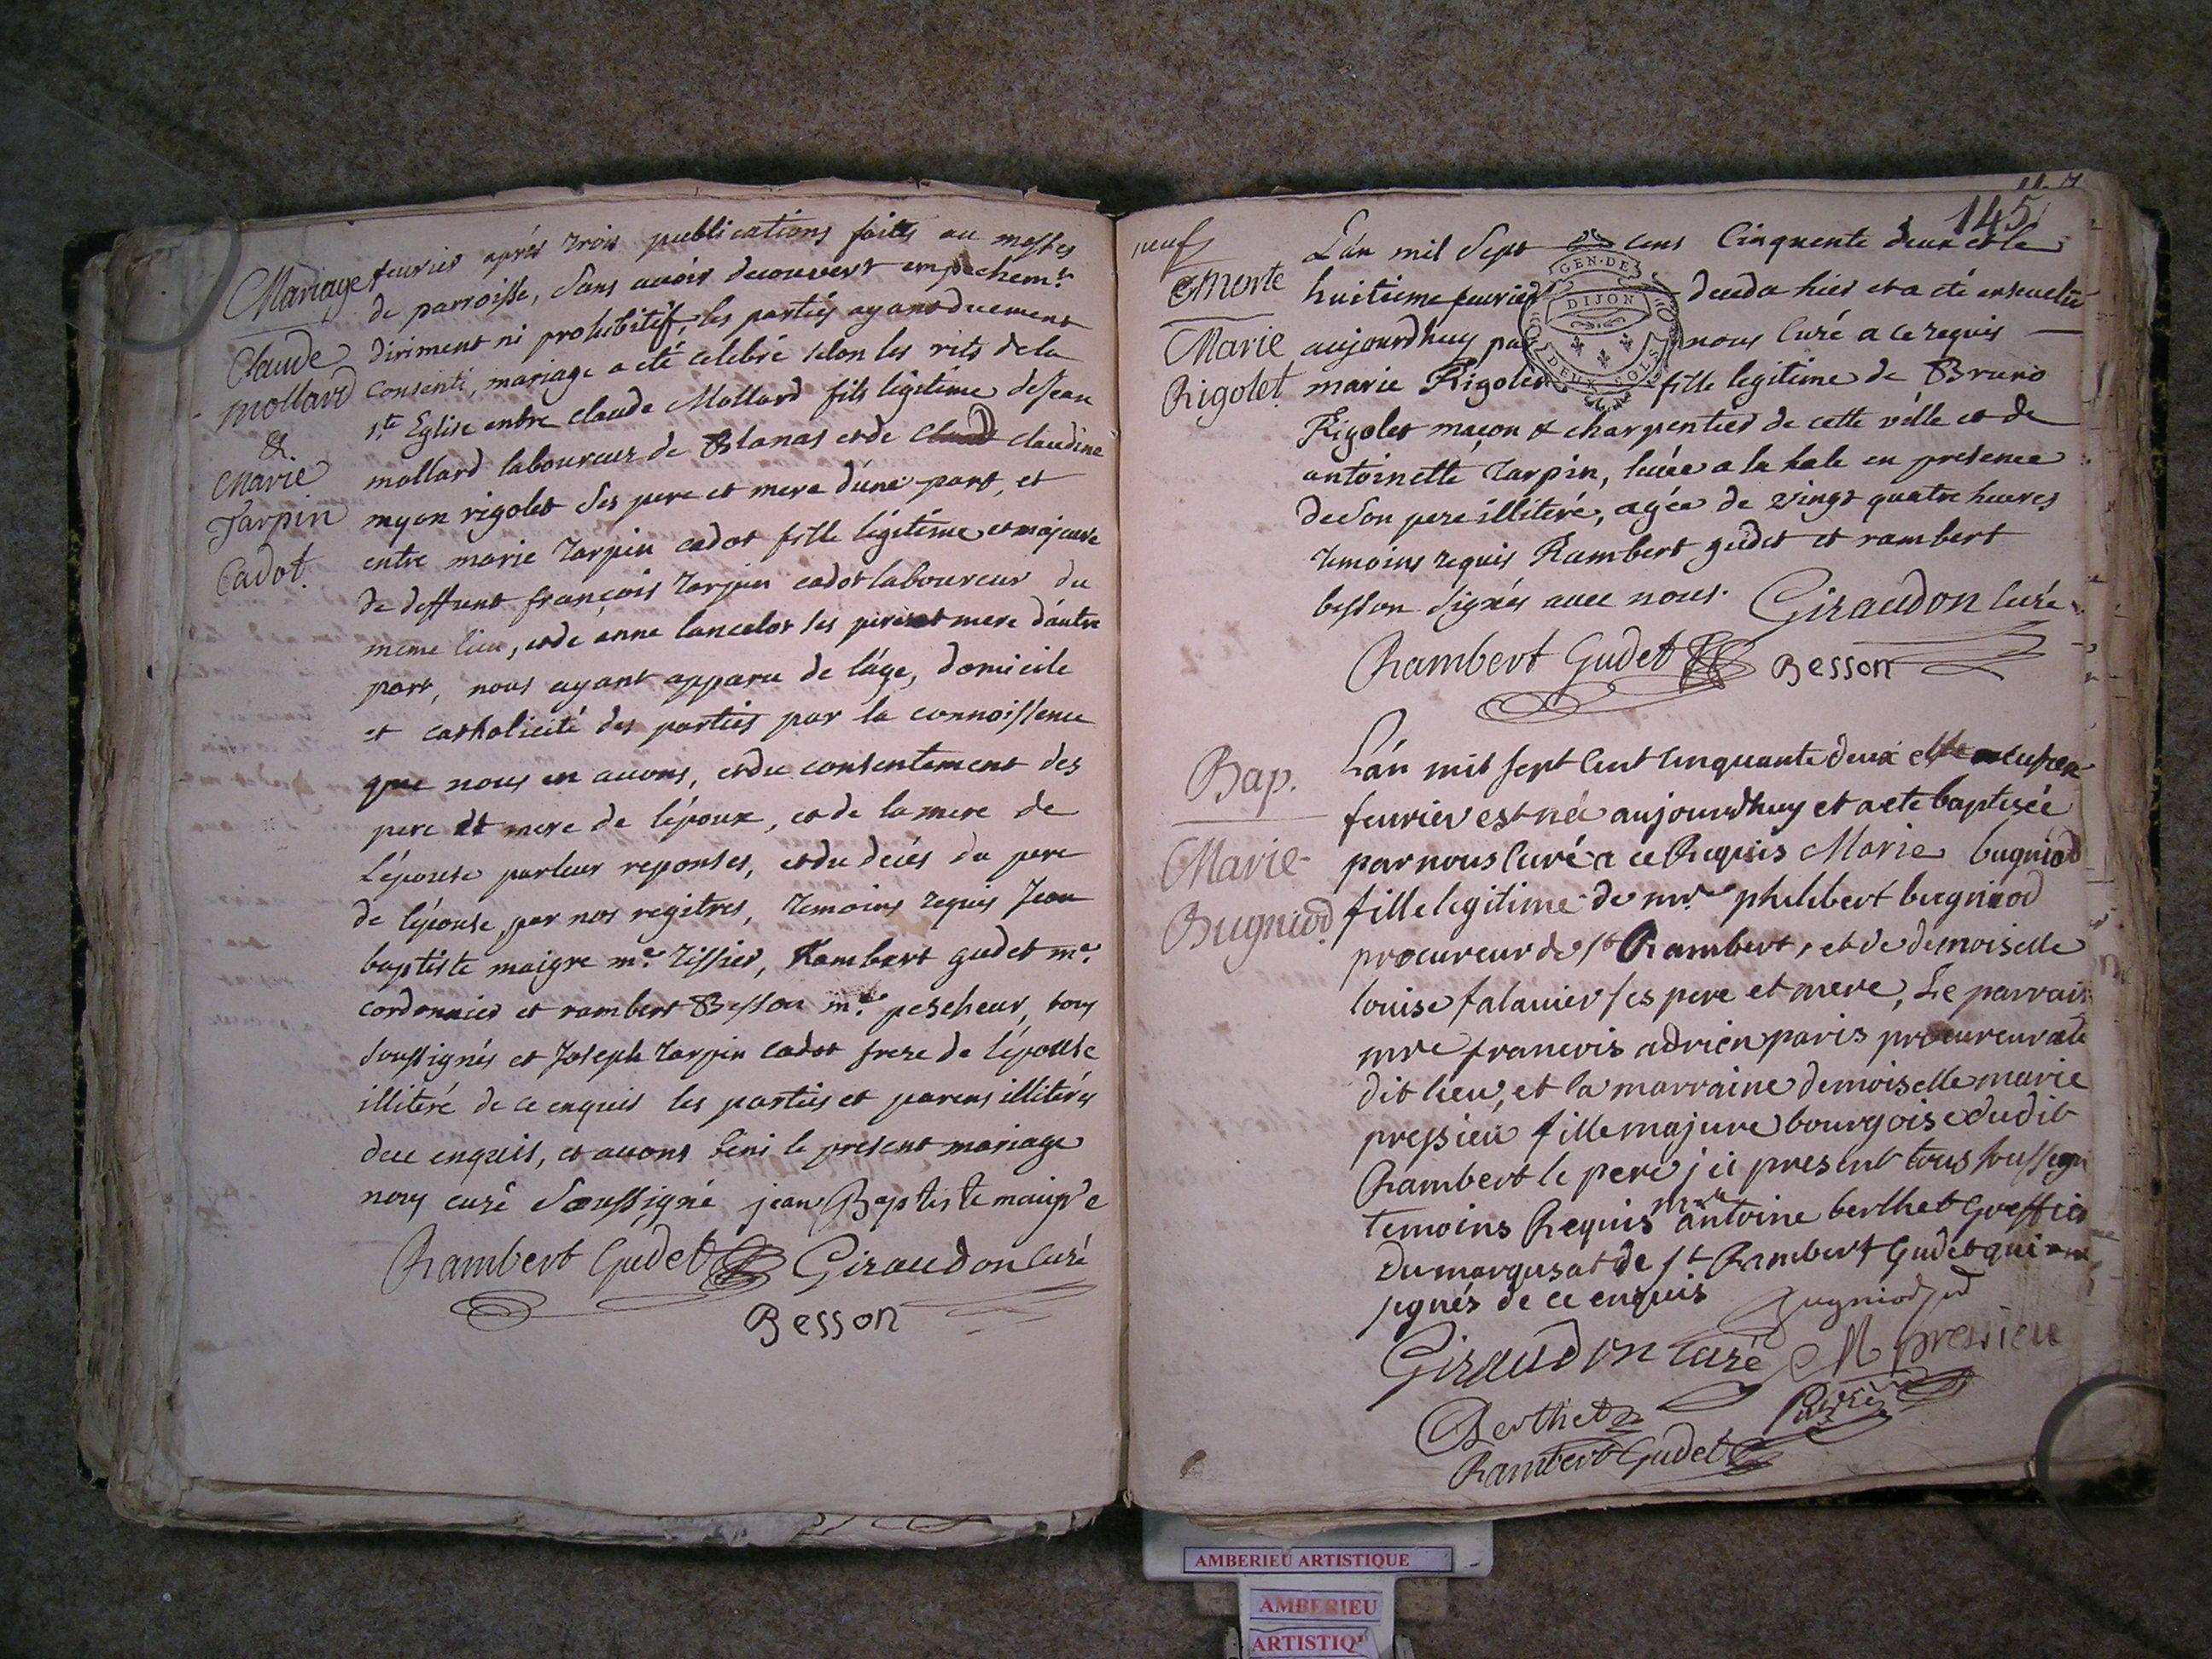 Mariage
Claude
Mollard
&
Marie
Tarpin
Cadot.
feurier aprés trois publications faites au messes
de parroisse, sans auoir decouuert empechem.t
diriment ni prohibitif, les parties ayant duement
consenti, mariage a eté celebré selon les rits de la
s.te Eglise entre claude Mollard fils legitime de Jean
mollard laboureur de Blanas et de claudine
myon rigolet ses pere et mere d'une part, et
entre marie tarpin cadot fille légitime et majeure
de deffunt françois tarpin cadot laboureur du
meme lieu, et de anne lancelot ses pere et mere d'autre
part, nous ayant apparu de l'âge, domicile
et catholicité des parties par la connoissence
que nous en auons, et du consentement des
pere et mere de l'époux, et de la mere de
l'épouse par leur reponses, et du decés du pere
de l'épouse, par nos registres, temoins requis Jean
baptiste maigre m.e tissier, Rambert gudet m.e
cordonnier et rambert Besson m.e pescheur, tous
soussignés et Joseph tarpin cadot frere de l'épouse
illiteré de ce enquis les parties et parens illiterés
de ce enquis, et auons beni le present mariage
nous curé soussigné jean Baptiste maigre
Rambert Gudet Giraudon curé
Besson
145
neuf
Morte
Marie
Rigolet
GEN·DE
DIJON
DEUX·SOLS
L'an mil sept cens Cinquente deux et le
huitieme feurier deceda hier et a eté enseuelie
aujourdhuy par nous Curé a ce requis
marie Rigolet fille legitime de Bruno
Rigolet maçon & charpentier de cette ville et de
antoinette tarpin, leuée a la hale en presence
de son pere illiteré, agée de vingt quatre heures
temoins requis Rambert gudet et rambert
besson signés auec nous. Giraudon Curé
Rambert Gudet Besson
Bap.
Marie
Bugniod.
L'an mil sept Cent Cinquante deux et le
feurier est née aujourdhuy et a ete baptisée
par nous Curé a ce Requis Marie bugniod
fille legitime de mre philibert bugniod
procureur de st Rambert, et de demoiselle
louise falauier ses pere et mere, Le parrain
mre francois adrien paris procureur au
dit lieu, et la marraine demoiselle marie
pressieu fille majure bourgoise dudit
Rambert le pere ici present tous
temoins Requis mre antoine berthet Greffier
du marquisat de st Rambert Gudet qui
signés de ce enquis Bugniod
Giraudon Curé M pressieu
Berthet Paris
Rambert Gudet
AMBERIEU ARTISTIQUE
AMBERIEU
ARTISTIQ